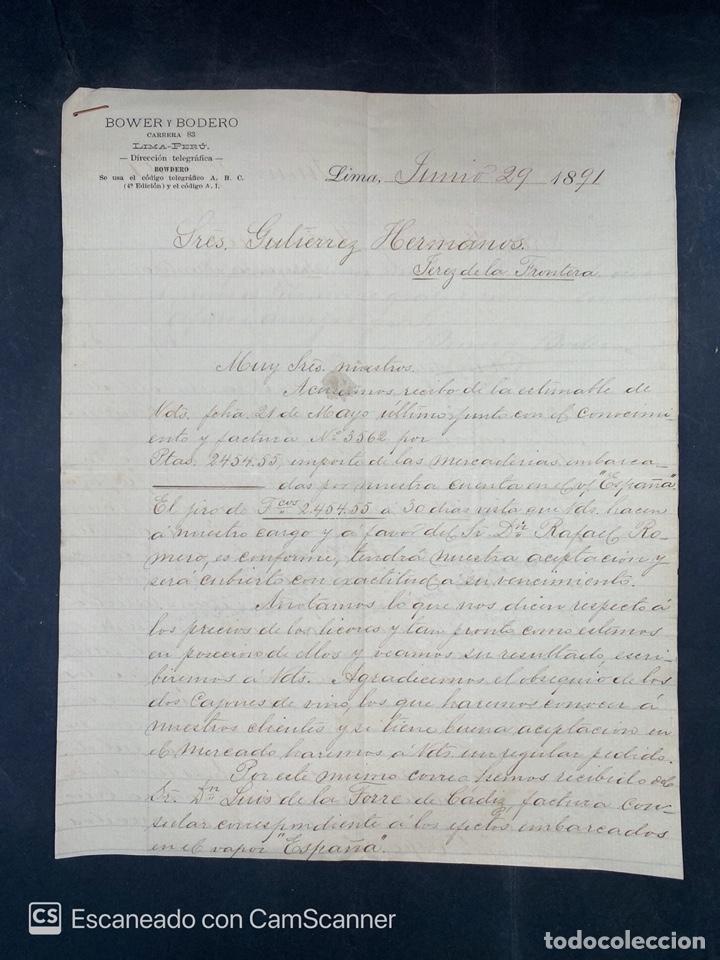 BOWER Y BODERO
CARRERA 83
LIMA-PERÚ.
— Dirección telegráfica —
BOWDERO
Se usa el código telegráfico A. B. C.
(4ª Edición) y el código A. I.
Lima, Junio 29 1891
Sres. Gutierrez Hermanos.
Jerez de la Frontera
Muy Sres. nuestros.
Acusamos recibo de la estimable de
Vds. fcha. 21 de Mayo último junto con el conocimi
ento y factura No. 3562 por
Ptas. 2454.55 importe de las mercaderias embarca-
das por nuestra cuenta en el vf "España"
El jiro de Fcos 2.454.55 á 30 dias vista que Vds. hacen
á nuestro cargo y á favor del Sr. Dn Rafael Ro-
mero, es conforme, tendrá nuestra aceptacion y
será cubierto con exactitud á su vencimiento.
Anotamos lo que nos dicen respecto á
los precios de los licores y tan pronto como estemos
en posecion de ellos y veamos su resultado, escri-
biremos á Vds. Agradecemos el obsequio de los
dos cajones de vino, los que haremos conocer á
nuestros clientes y si tiene buena aceptacion en
el mercado haremos á Vds. un regular pedido.
Por este mismo correo hemos recibido del
Sr. Dn Luis de la Torre de Cádiz, factura con-
sular correspondiente á los efectos embarcados
en el vapor "España".
CS Escaneado con CamScanner
todocoleccion